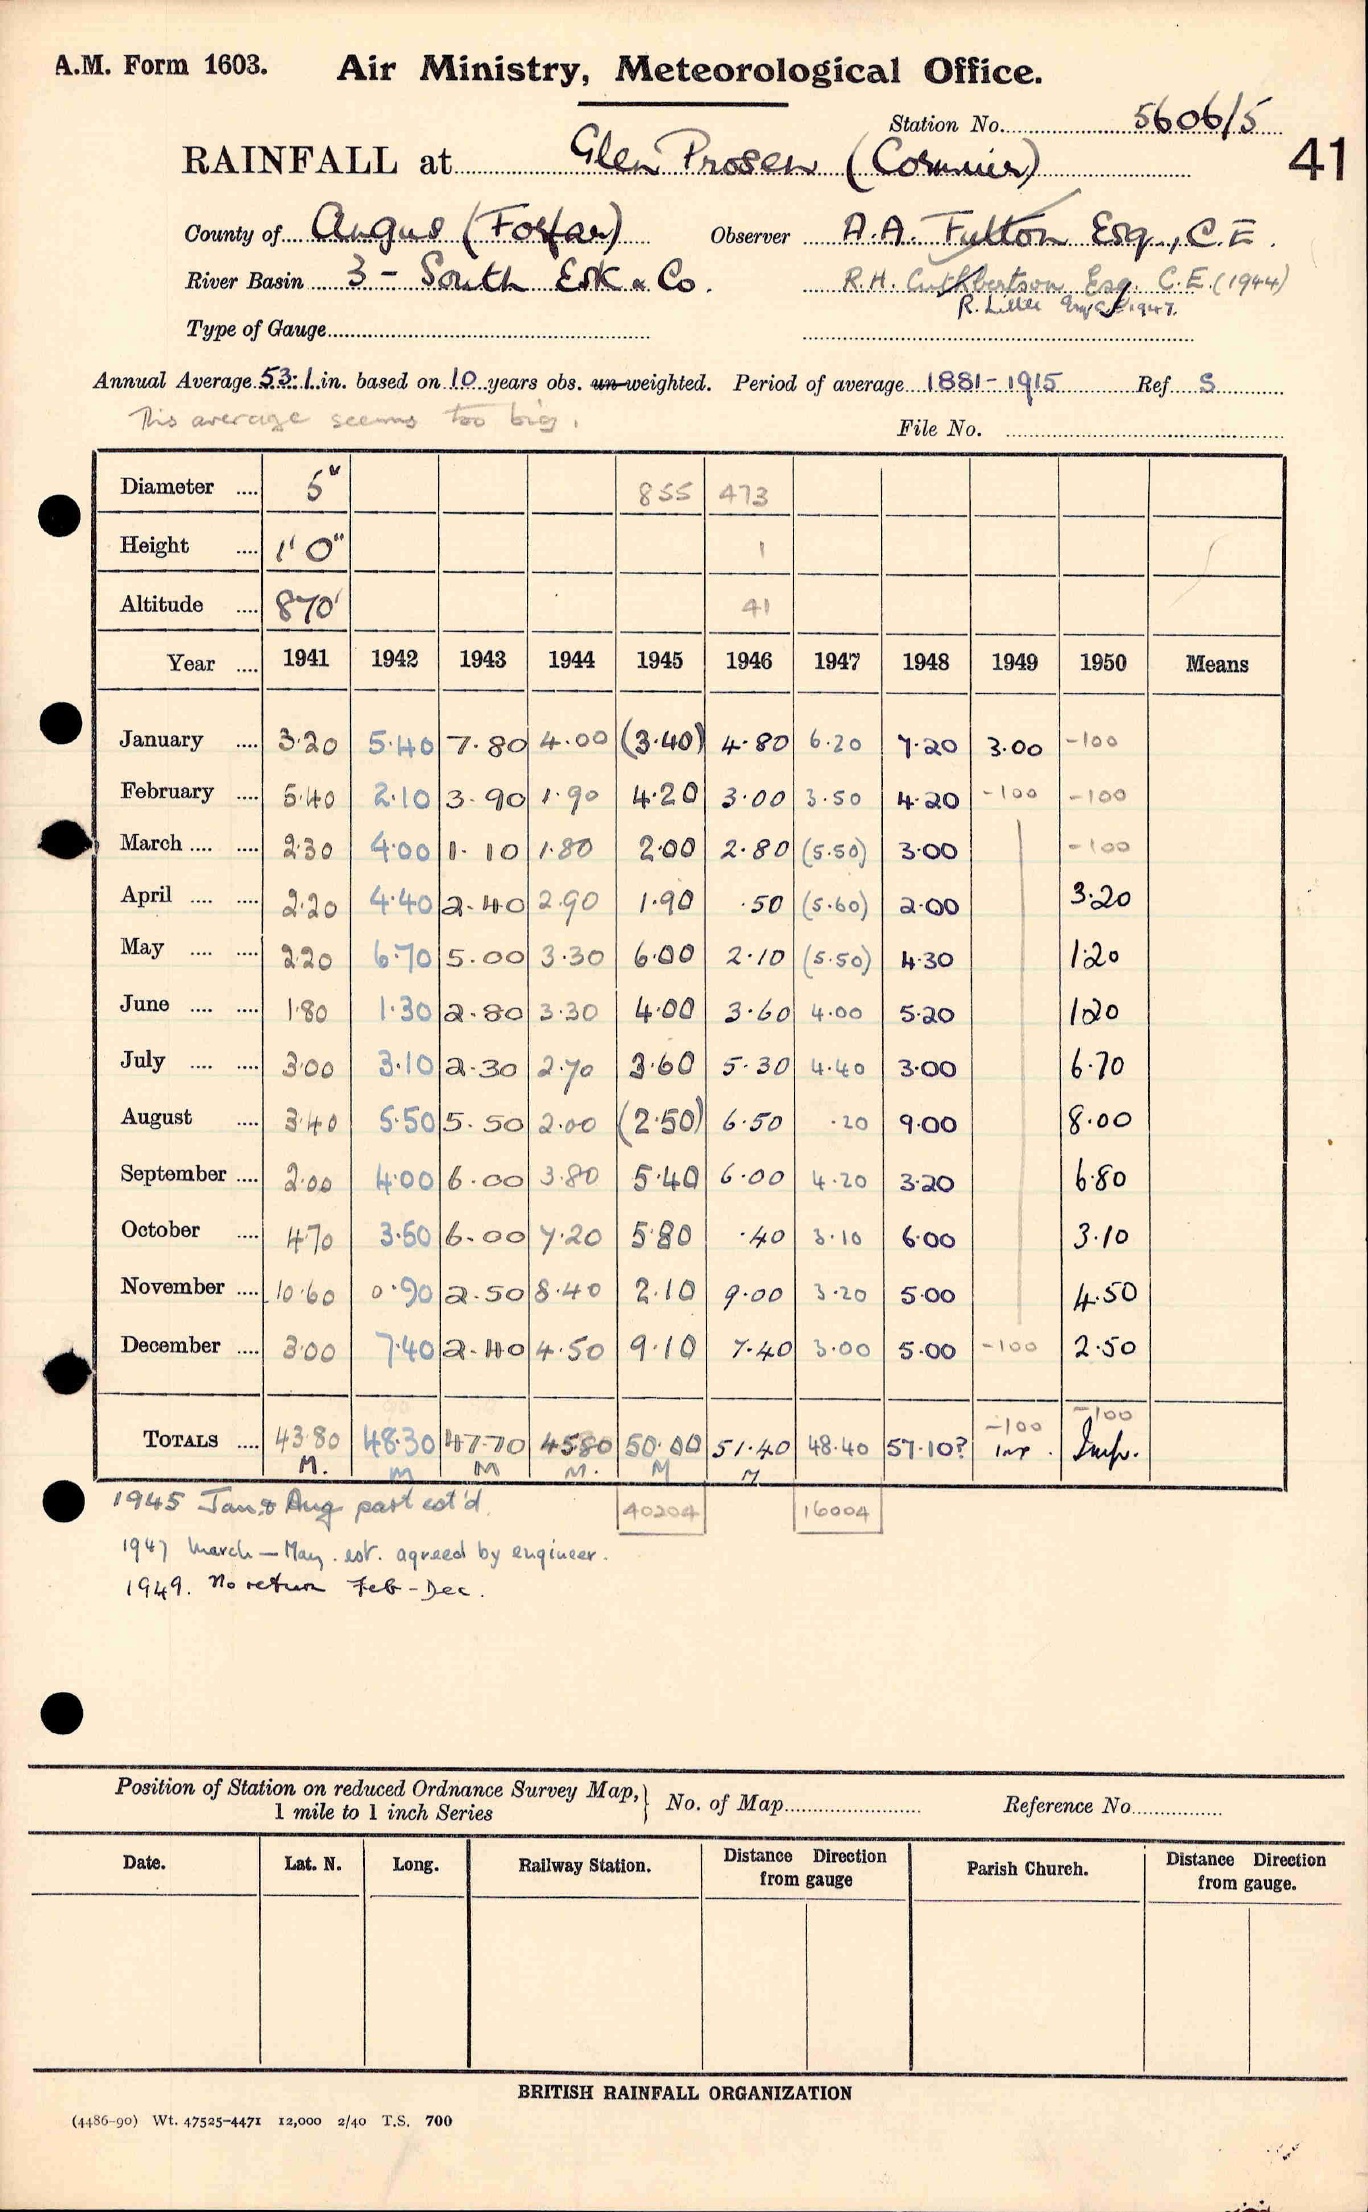 A.M. Form 1603. Air Ministry, Meteorological Office.
Station No. 5606/5
RAINFALL at Glen Prosen (Cormuir) 41
County of Angus (Forfar) Observer A.A. Fulton Esq., C.E.
River Basin 3 - South Esk & Co. R.H. Cuthbertson Esq. C.E. (1944)
R. Little Esq C.E 1947.
Type of Gauge
Annual Average 53.1 in. based on 10 years obs. un-weighted. Period of average 1881-1915 Ref S
This average seems too big.
File No.
Diameter .... 5" 855 473
Height .... 1' 0" 1
Altitude .... 870' 41
Year .... 1941 1942 1943 1944 1945 1946 1947 1948 1949 1950 Means
January .... 3.20 5.40 7.80 4.00 (3.40) 4.80 6.20 7.20 3.00 -100
February .... 5.40 2.10 3.90 1.90 4.20 3.00 3.50 4.20 -100 -100
March .... .... 2.30 4.00 1.10 1.80 2.00 2.80 (5.50) 3.00 -100
April .... .... 2.20 4.40 2.40 2.90 1.90 .50 (5.60) 2.00 3.20
May .... .... 2.20 6.70 5.00 3.30 6.00 2.10 (5.50) 4.30 1.20
June .... .... 1.80 1.30 2.80 3.30 4.00 3.60 4.00 5.20 1.20
July .... .... 3.00 3.10 2.30 2.70 3.60 5.30 4.40 3.00 6.70
August .... 3.40 5.50 5.50 2.00 (2.50) 6.50 .20 9.00 8.00
September .... 2.00 4.00 6.00 3.80 5.40 6.00 4.20 3.20 6.80
October .... 4.70 3.50 6.00 7.20 5.80 .40 3.10 6.00 3.10
November .... 10.60 0.90 2.50 8.40 2.10 9.00 3.20 5.00 4.50
December .... 3.00 7.40 2.40 4.50 9.10 7.40 3.00 5.00 -100 2.50
-100 -100
TOTALS .... 43.80 48.30 47.70 45.80 50.00 51.40 48.40 57.10? Imp. Imp.
M. M M M. M M
1945 Jan. & Aug part est'd. 40204 16004
1947 March - May. est. agreed by engineer.
1949. No return Feb - Dec.
Position of Station on reduced Ordnance Survey Map, 1 mile to 1 inch Series } No. of Map Reference No.
Date. Lat. N. Long. Railway Station. Distance from gauge Direction Parish Church. Distance from gauge. Direction
BRITISH RAINFALL ORGANIZATION
(4486-90) Wt. 47525-4471 12,000 2/40 T.S. 700